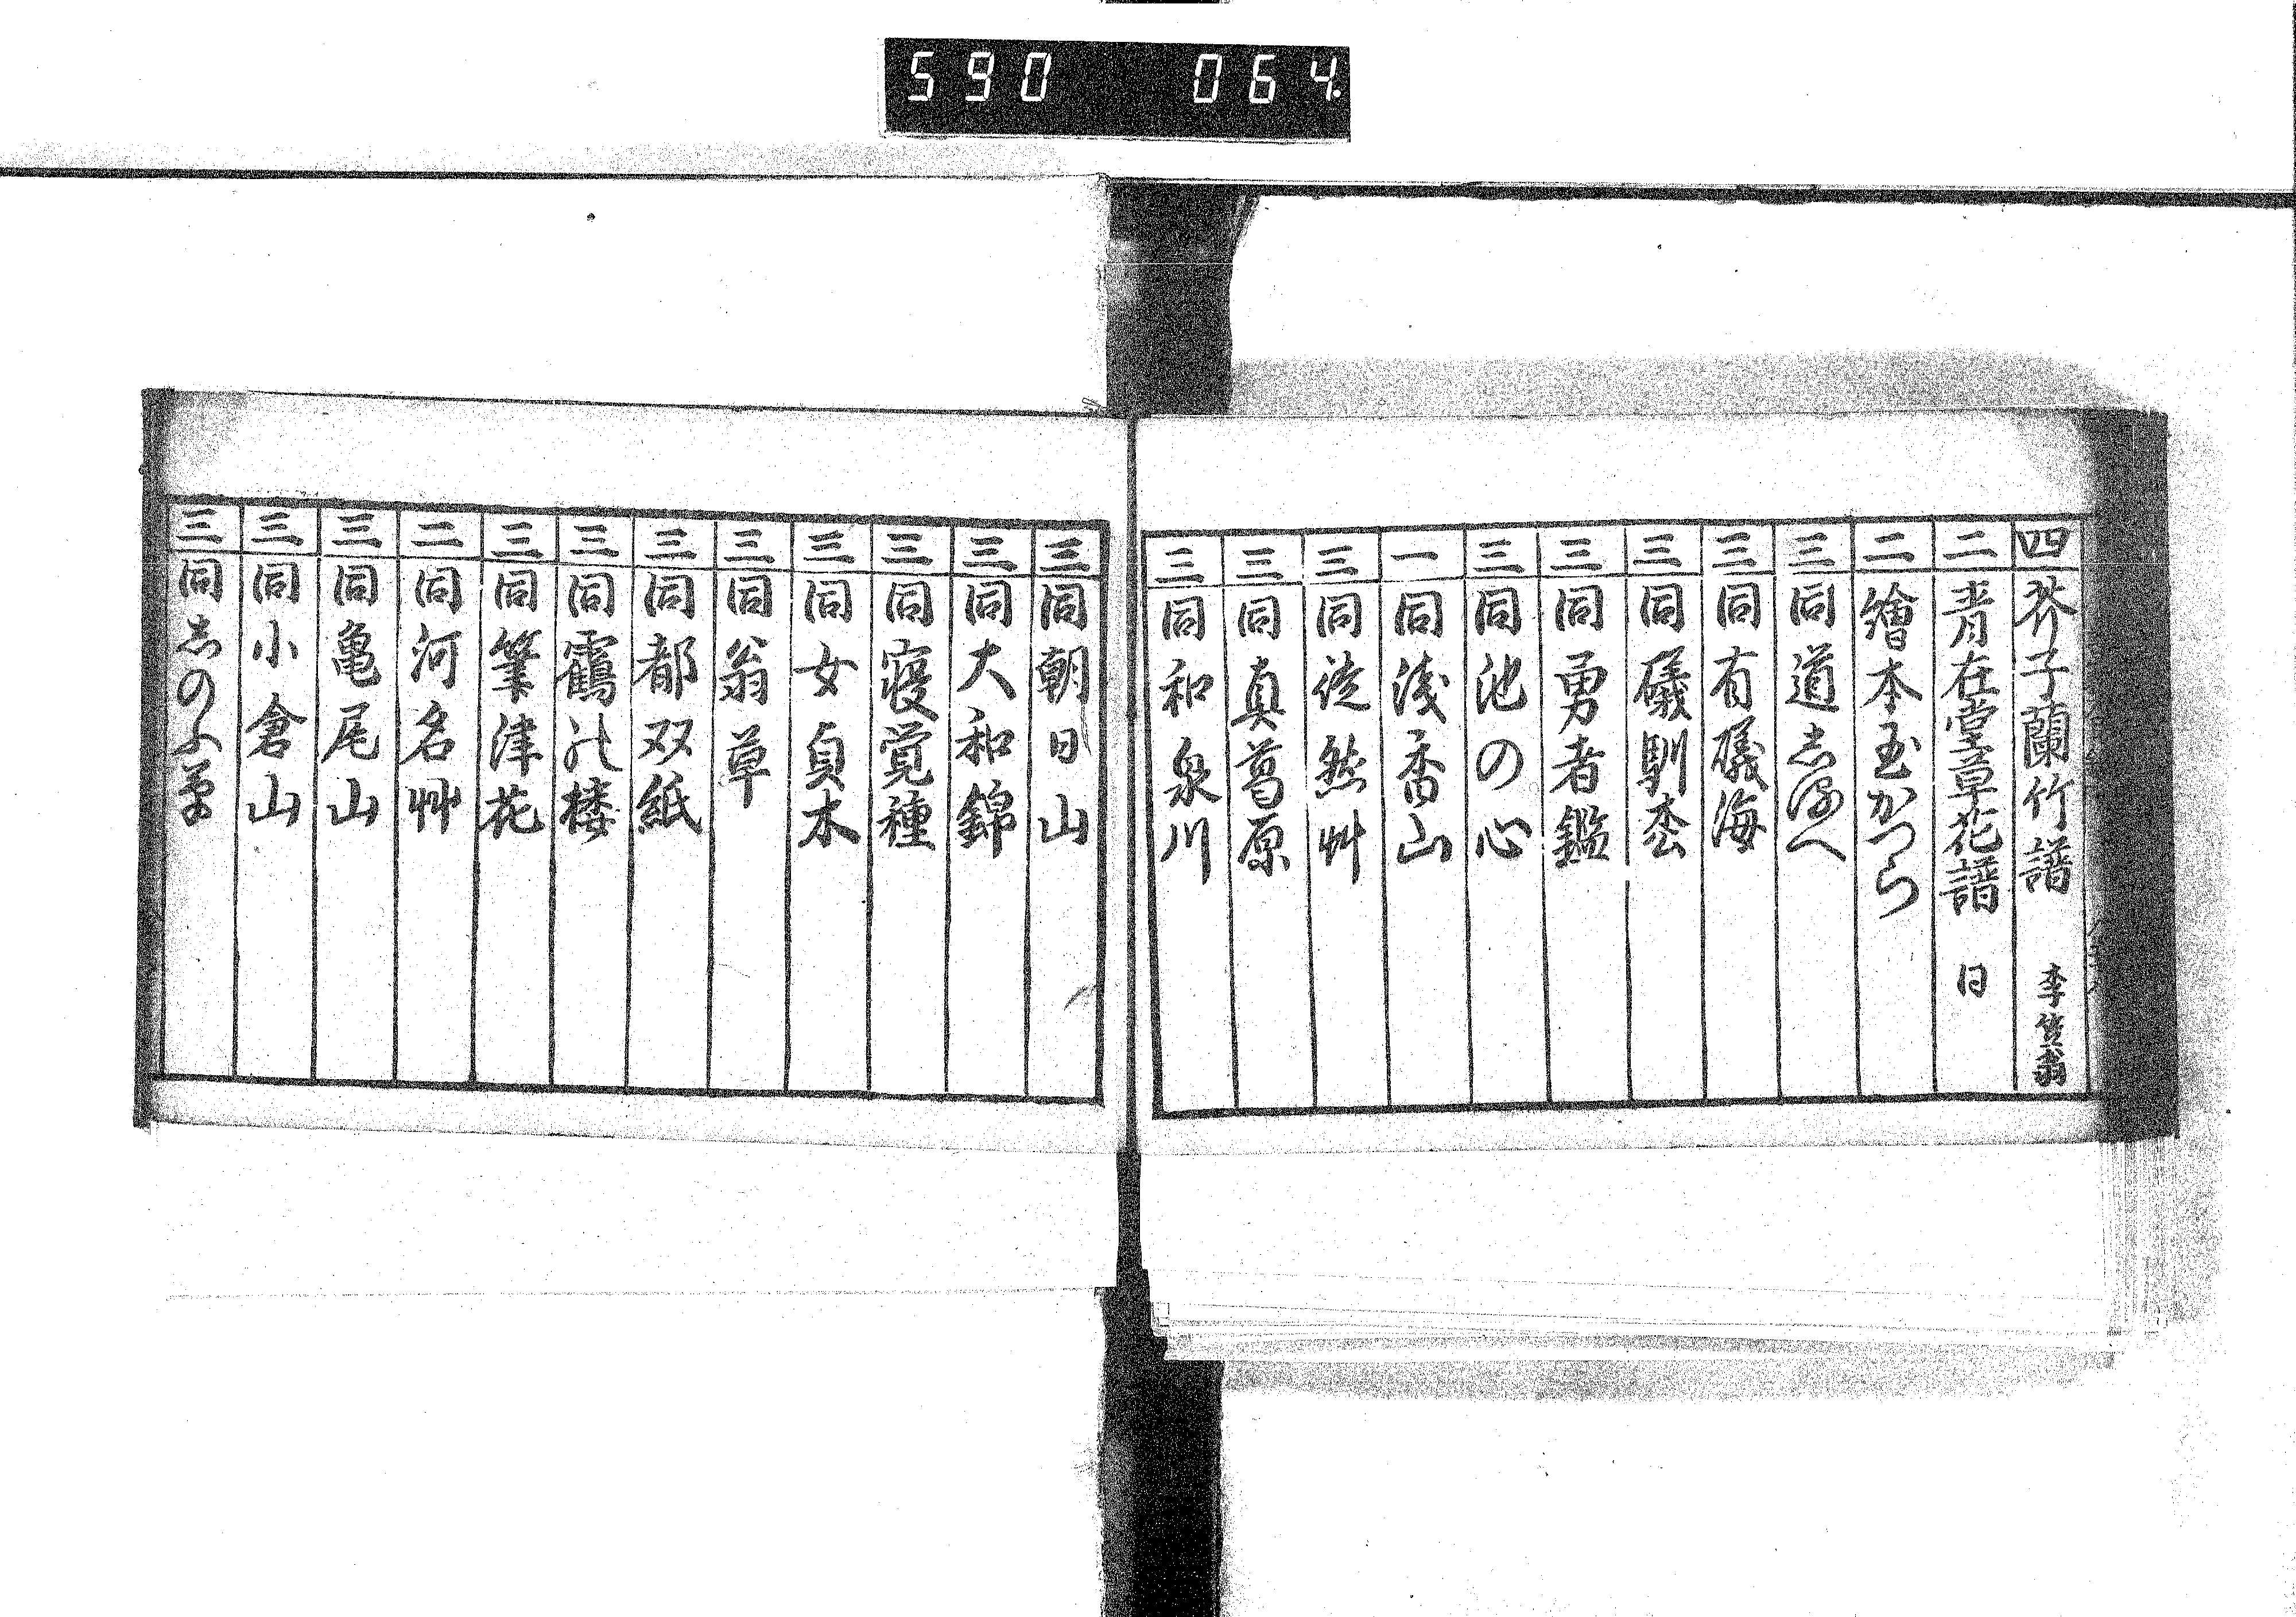 590 064
四 芥子蘭竹譜 李笠翁
二 青在堂草花譜 同
二 繪本玉かつら
三 同道志るへ
三 同有礒海
三 同礒馴枩
三 同勇者鑑
三 同池の心
一 同浅香山
三 同徒然艸
三 同真葛原
三 同和泉川
三 同朝日山
三 同大和錦
三 同寝覚種
三 同女貞木
三 同翁草
三 同都双紙
三 同鶴の棲
三 同筆津花
二 同河名艸
三 同亀尾山
三 同小倉山
三 同志のふ草